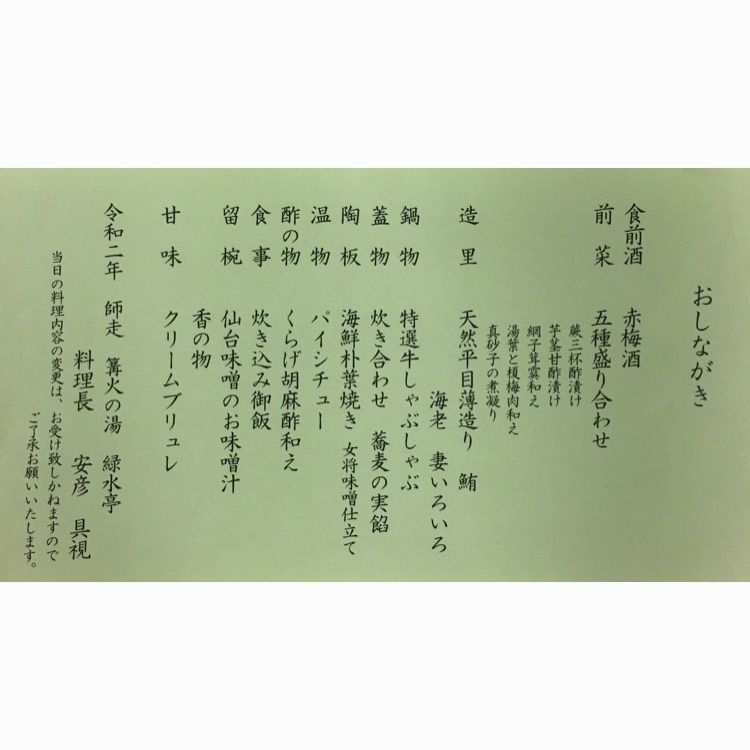 おしながき
食前酒 赤梅酒
前菜 五種盛り合わせ
蕨三杯酢漬け
芋茎甘酢漬け
網子茸霙和え
湯葉と榎梅肉和え
真砂子の煮凝り
造里 天然平目薄造り 鮪
海老 妻いろいろ
鍋物 特選牛しゃぶしゃぶ
蓋物 炊き合わせ 蕎麦の実餡
陶板 海鮮朴葉焼き 女将味噌仕立て
温物 パイシチュー
酢の物 くらげ胡麻酢和え
食事 炊き込み御飯
留椀 仙台味噌のお味噌汁
香の物
甘味 クリームブリュレ
令和二年 師走 篝火の湯 緑水亭
料理長 安彦 具視
当日の料理内容の変更は、お受け致しかねますので
ご了承お願いいたします。